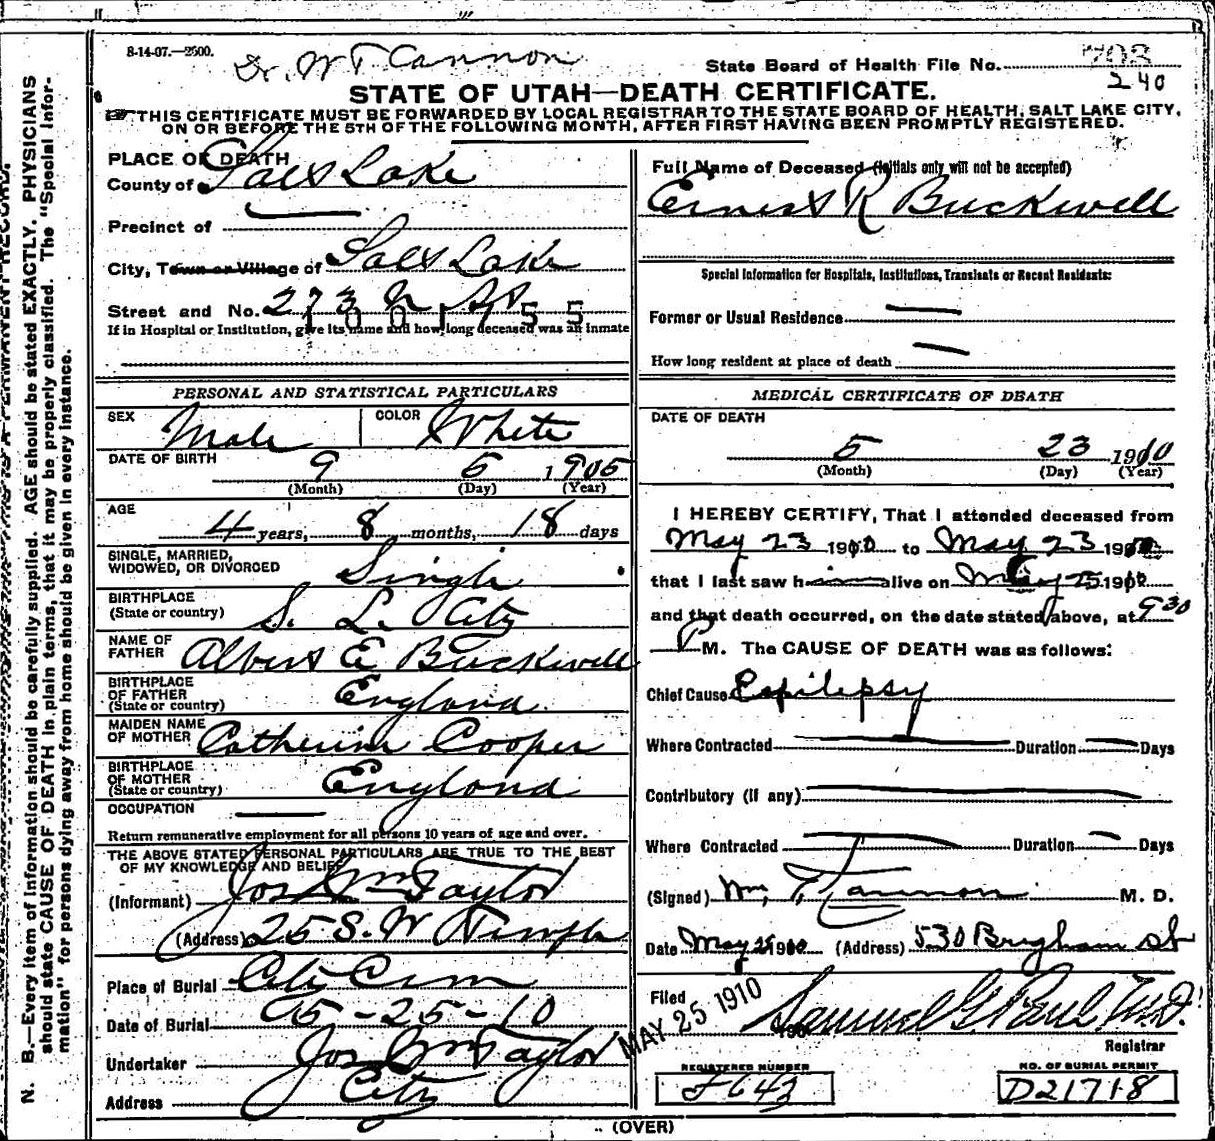 8-14-07.—2500.
Dr. W T Cannon
State Board of Health File No.
240
STATE OF UTAH—DEATH CERTIFICATE.
THIS CERTIFICATE MUST BE FORWARDED BY LOCAL REGISTRAR TO THE STATE BOARD OF HEALTH, SALT LAKE CITY,
ON OR BEFORE THE 5TH OF THE FOLLOWING MONTH, AFTER FIRST HAVING BEEN PROMPTLY REGISTERED.
PLACE OF DEATH
County of Salt Lake
Precinct of
City, Town or Village of Salt Lake
Street and No. 273 N St
1001755
If in Hospital or Institution, give its name and how long deceased was an inmate
PERSONAL AND STATISTICAL PARTICULARS
SEX Male COLOR White
DATE OF BIRTH 9 5 1905
(Month) (Day) (Year)
AGE 4 years, 8 months, 18 days
SINGLE, MARRIED,
WIDOWED, OR DIVORCED Single
BIRTHPLACE
(State or country) S. L. City
NAME OF
FATHER Albert E Buckwell
BIRTHPLACE
OF FATHER
(State or country) England
MAIDEN NAME
OF MOTHER Catherine Cooper
BIRTHPLACE
OF MOTHER
(State or country) England
OCCUPATION
Return remunerative employment for all persons 10 years of age and over.
THE ABOVE STATED PERSONAL PARTICULARS ARE TRUE TO THE BEST
OF MY KNOWLEDGE AND BELIEF
(Informant) Jos Wm Taylor
(Address) 25 S. W Temple
Place of Burial City Cem
Date of Burial 05-25-10
Undertaker Jos Wm Taylor
Address City
Full Name of Deceased (Initials only will not be accepted)
Ernest R Buckwell
Special Information for Hospitals, Institutions, Transients or Recent Residents:
Former or Usual Residence
How long resident at place of death
MEDICAL CERTIFICATE OF DEATH
DATE OF DEATH
5 23 1910
(Month) (Day) (Year)
I HEREBY CERTIFY, That I attended deceased from
May 23 1910 to May 23 1910
that I last saw him alive on May 23 1910
and that death occurred, on the date stated above, at 9 30
P M. The CAUSE OF DEATH was as follows:
Chief Cause Epilepsy
Where Contracted Duration Days
Contributory (if any)
Where Contracted Duration Days
(Signed) Wm. T. Cannon M. D.
Date May 1910 (Address) 530 Brigham St
Filed
MAY 25 1910 Samuel G. Paul M.D.
Registrar
REGISTERED NUMBER
F643
NO. OF BURIAL PERMIT
D21718
(OVER)
N. B.—Every item of information should be carefully supplied. AGE should be stated EXACTLY. PHYSICIANS
should state CAUSE OF DEATH in plain terms, that it may be properly classified. The "Special Infor-
mation" for persons dying away from home should be given in every instance.